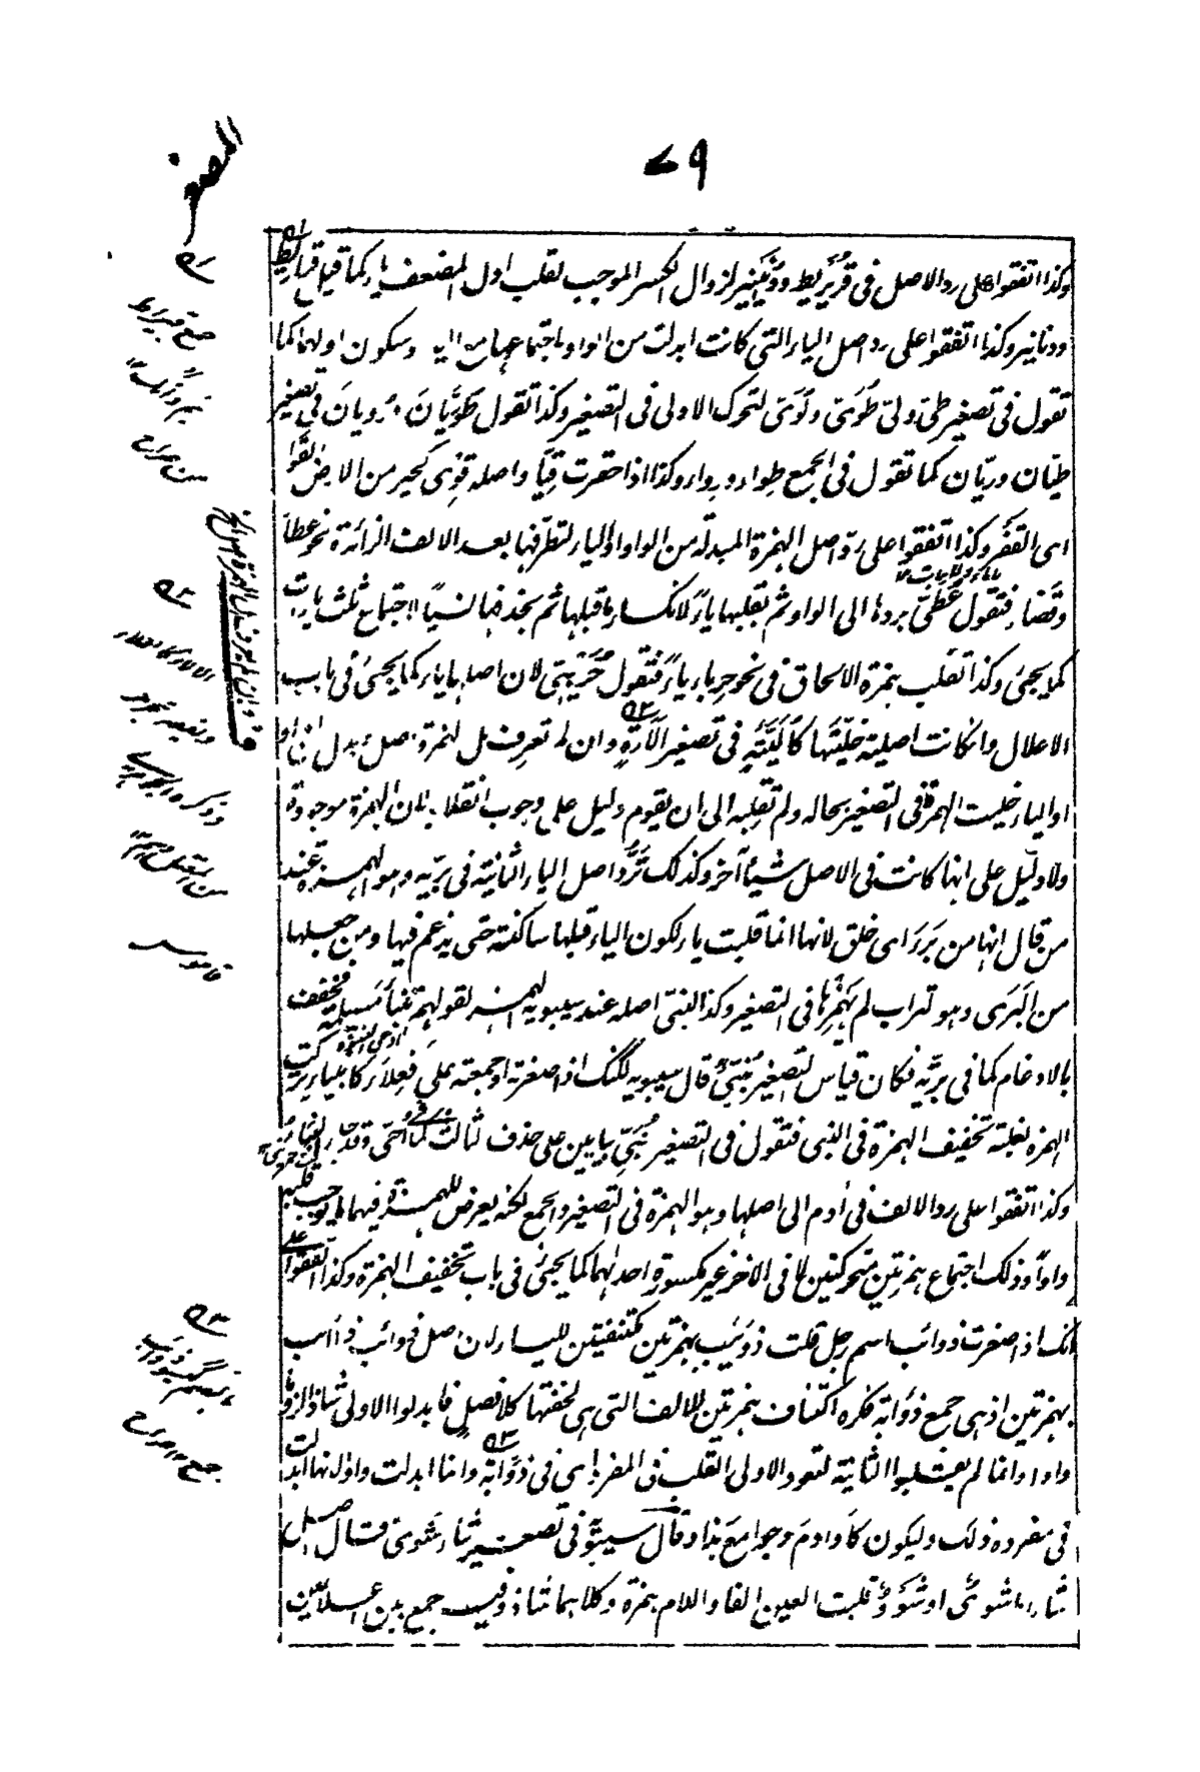 ٧٩
المصغر
وكذا اتفقوا على رد الاصل فى قُرَيْرِيط ودُنَيْنِير لزوال الكسر الموجب لقلب اول المضعف ياء كما قيل قراريط
ودنانير وكذا اتفقوا على رد اصل الياء التى كانت ابدلت من الواو لاجتماعها مع الياء وسكون اولهما كما
تقول فى تصغير طىّ ولىّ طُوَىّ ولُوَىّ لتحرك الاولى فى التصغير وكذا تقول طُوَيَّان ورُوَيَّان فى تصغير
طيّان وريّان كما تقول فى الجمع طِواء ورِواء وكذا اذا حقرت قِيًّا واصله قِوْىٌ كحبر من الارض القَوَاء
اى القَفْر وكذا اتفقوا على ردّ اصل الهمزة المبدلة من الواو او الياء لتطرفها بعد الالف الزائدة نحو عطاء
وقضاء فتقول عُطَىّ بردها الى الواو ثم تقلبها ياءً لانكسار ما قبلها ثم تحذفها نسيًا لاجتماع ثلث ياءات
كما يجىء وكذا تقلب همزة الالحاق فى نحو حرباء ياءً فتقول حُرَيْبِىّ لان اصلها ياء كما يجىء فى باب
الاعلال وان كانت اصلية خلّيتها كأُلَيْئَة فى تصغير الَاءَةٍ وان لم تعرف هل الهمزة اصل او بدل من الواو
او الياء خليت الهمزة فى التصغير بحاله ولم تقلبه الى ان يقوم دليل على وجوب انقلابه لان الهمزة موجودة
ولا دليل على انها كانت فى الاصل شيئًا آخر وكذلك تَرُدُّ اصل الياء الثانية فى بريّه وهو الهمزة عند
من قال انها من بَرَءَ اى خلق لانها انما قلبت ياء لكون الياء قبلها ساكنة حتى يدغم فيها ومن جعلها
من البَرَى وهو تراب لم يهمزها فى التصغير وكذا النبىّ اصله عند سيبويه الهمز لقولهم تنبأ مسيلمة فخفف
بالادغام كما فى بريَّه فكان قياس التصغير نُبَيِّئ قال سيبويه لكنك اذا صغرته او جمعته على افعلاء كانبياء تركت
الهمزة لغلبة تخفيف الهمزة فى النبى فتقول فى التصغير نُبَىّ بيايين على حذف الثالث كما فى اُحَىّ وقد جاء
وكذا اتفقوا على رد الالف فى آدم الى اصلها وهو الهمزة فى التصغير والجمع لكنه يعرض للهمزة فيهما ما يوجب قلبها
واوًا وذلك اجتماع همزتين متحركتين لا فى الآخر غير مكسورة احدٰىهما كما يجىء فى باب تخفيف الهمزة وكذا اتفقوا على
انك اذا صغرت ذوائب اسم رجل قلت ذُؤَيْئِب بهمزتين مكتنفتين للياء لان اصل ذوائب ذءائب
بهمزتين اذ هى جمع ذؤابة فكره اكتناف همزتين للالف التى هى لخفتها كلا فصل فابدلوا الاولى شاذا لزومًا
واوا وانما لم يقلبوا الثانية لتعود الاولى القلب فى المفرد اى فى ذؤابة وانما ابدلت واوًا لانها ابدلت
فى مفرده ذلك وليكون كأَوادم وجوامع هذا وقال سيبويه فى تصغير شاء شُوَىّ فقال اصل
شاء اما شَوَىٌ او شَوَوٌ قلبت العين الفا واللام همزة وكلاهما شاذ وفيه جمع بين اعلالين
جمع قيراط
من صراح
قوله وان لم تعرف هل الهمزة اصل الخ
قاموس
جمع صراح